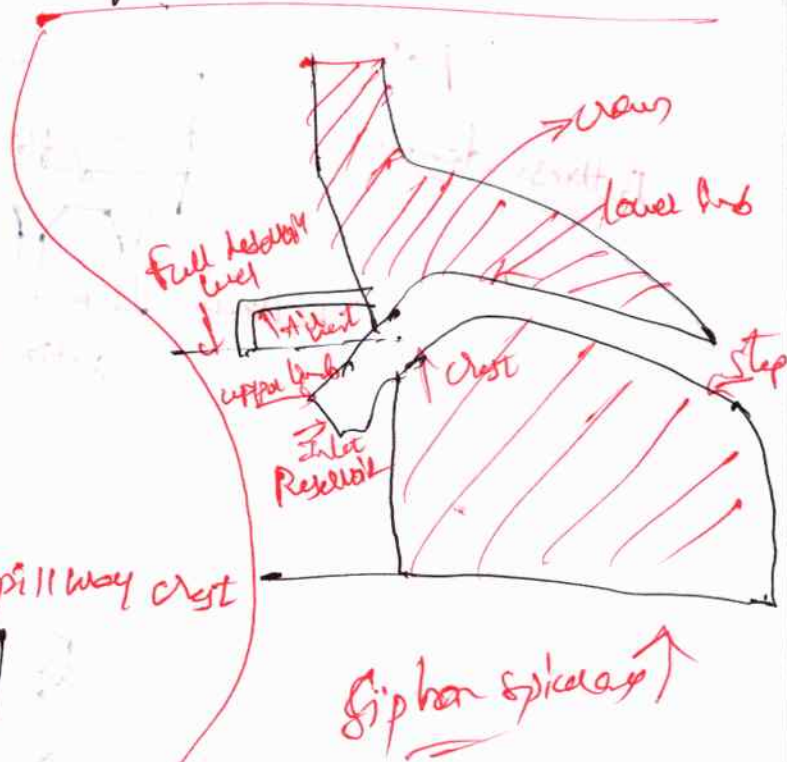 crown
lower limb
Full Reservoir
level
"A" vent
upper limb
crest
step
Inlet
Reservoir
pillway crest
Siphon spillway